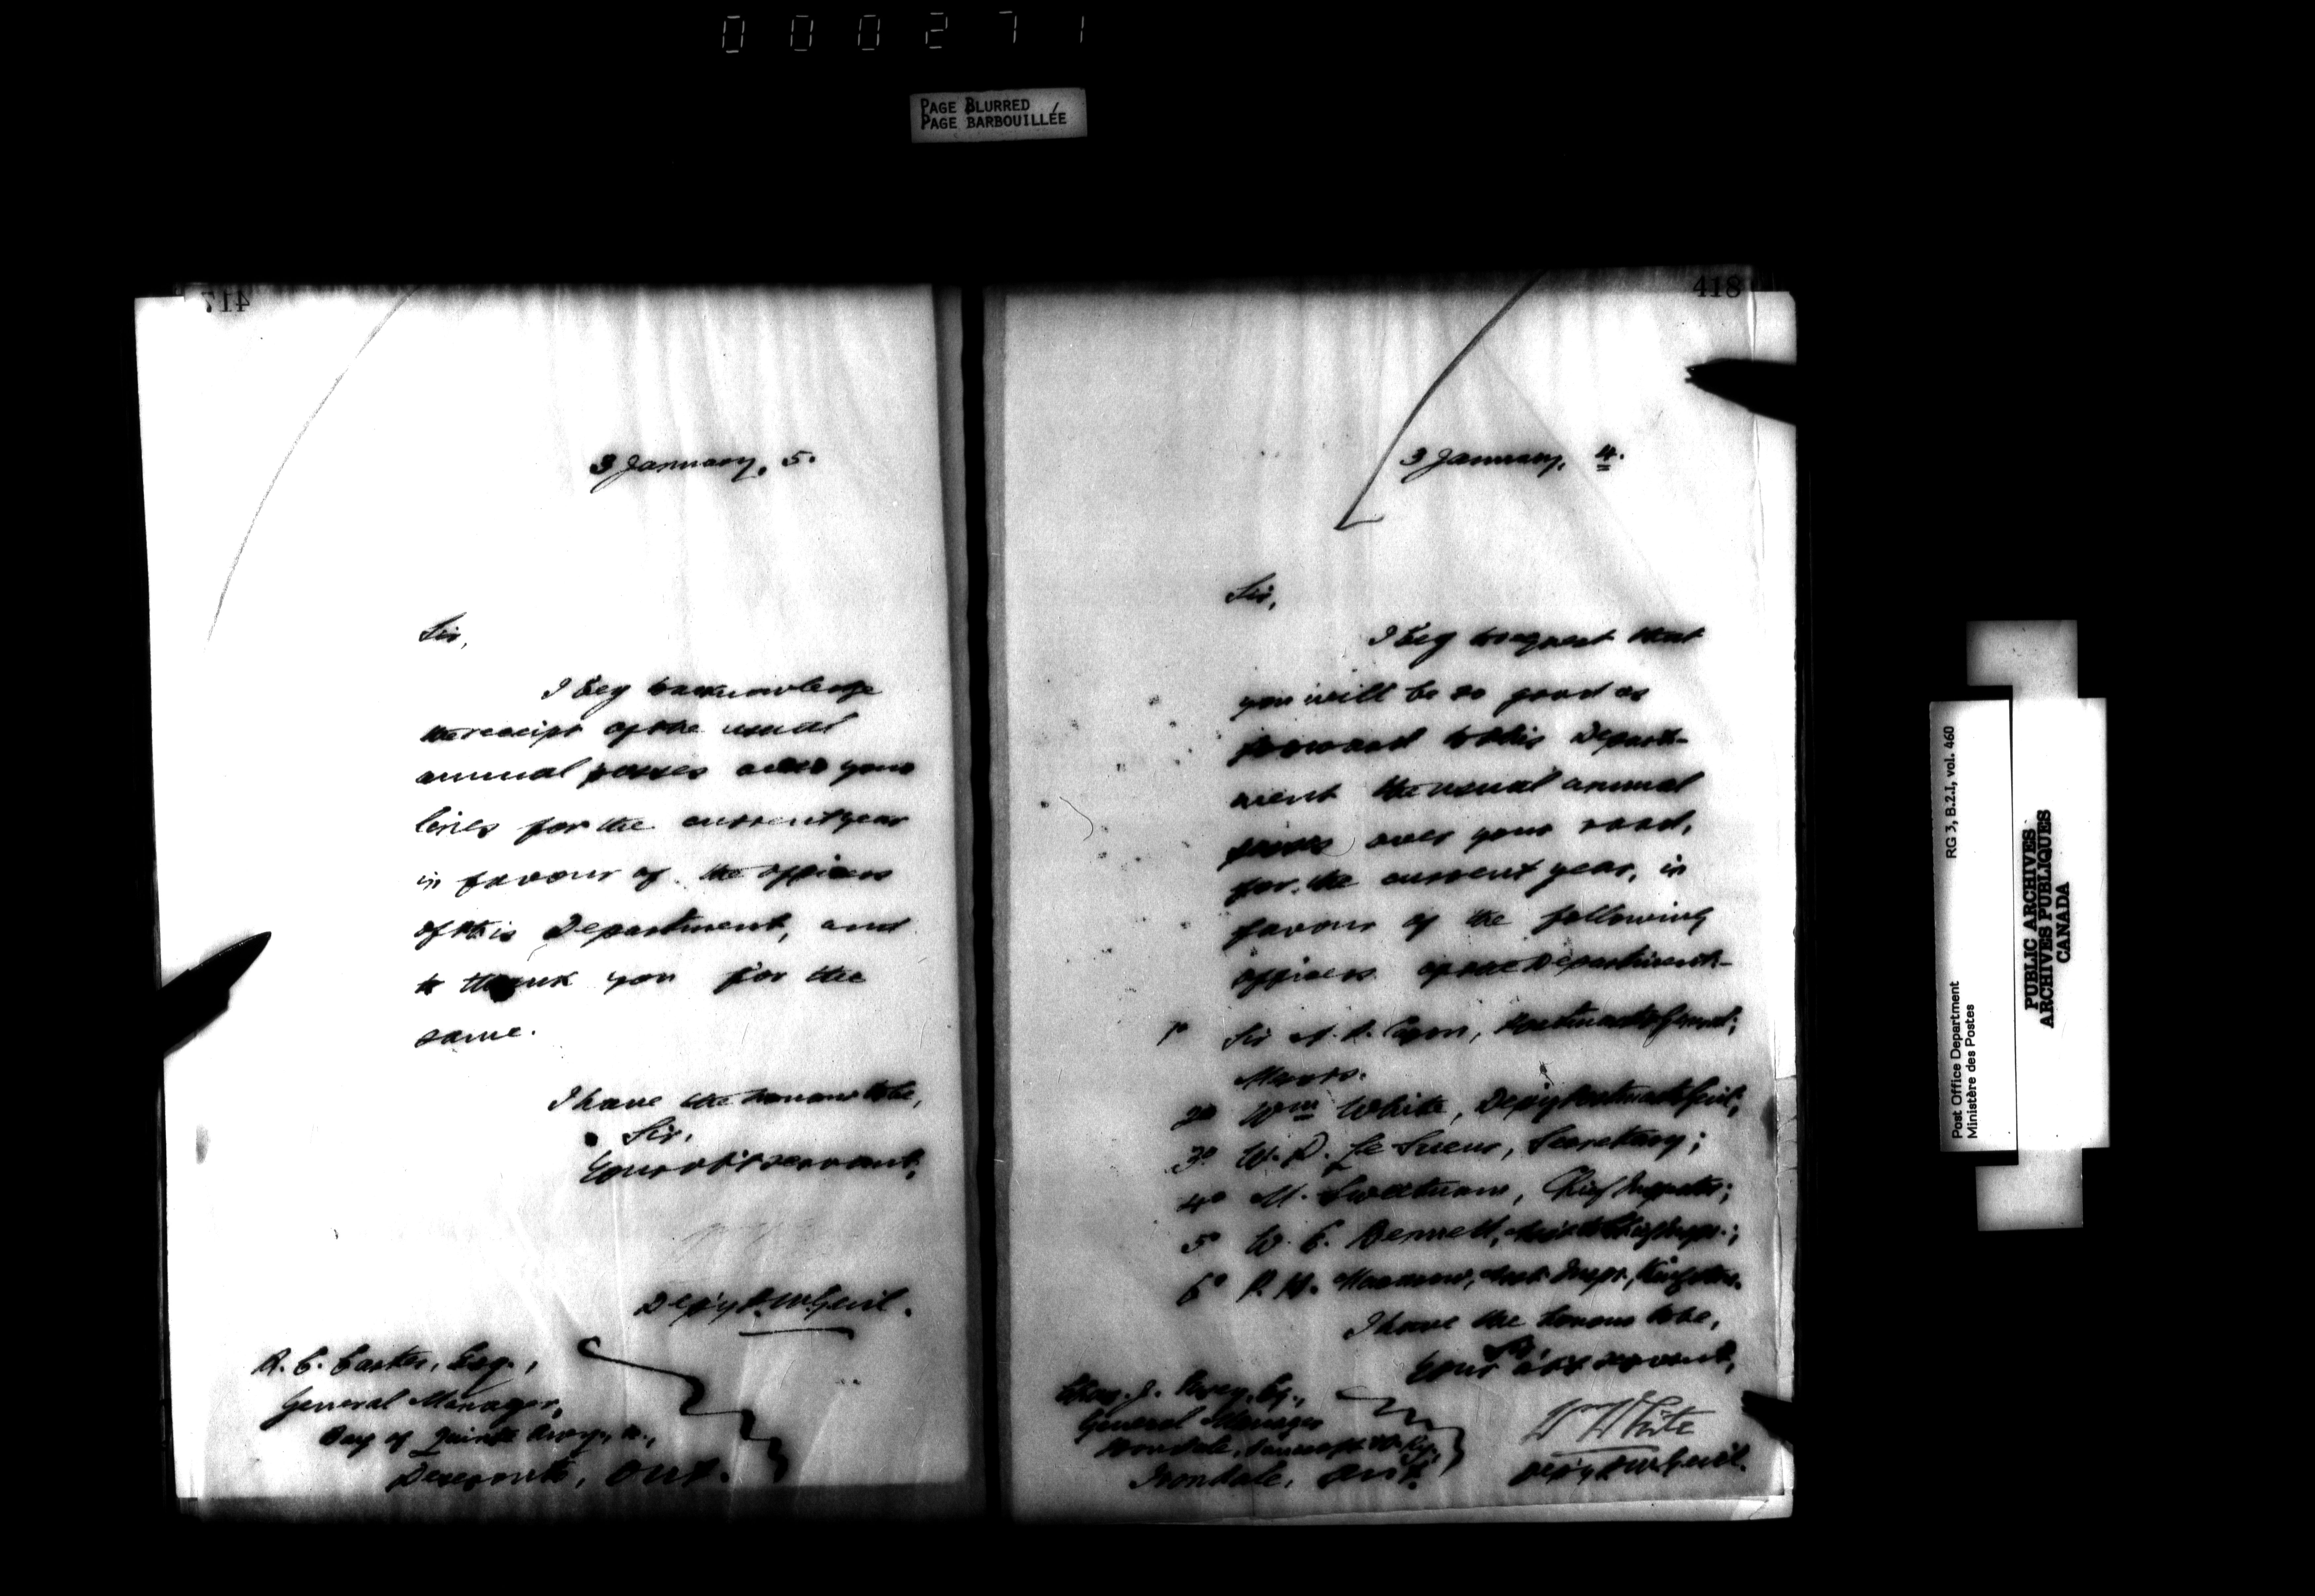 000271
PAGE BLURRED
PAGE BARBOUILLÉE
417
3 January, 5.
Sir,
I beg to acknowledge
the receipt of the usual
annual passes over your
lines for the current year
in favour of the officers
of this Department, and
to thank you for the
same.
I have the honour to be,
Sir,
Your ob't servant,
Dep'y P.M. Gen'l.
R. C. Carter, Esq.,
General Manager,
Bay of Quinte Rway, &c.,
Deseronto, Ont.
418
3 January, 4.
Sir,
I beg to request that
you will be so good as
forward to this Depart-
ment the usual annual
passes over your road,
for the current year, in
favour of the following
officers of the Department-
1º Sir A. P. Caron, Postmaster General;
2º Wm White, Dep'y Postmaster Gen'l;
3º W. D. Le Sueur, Secretary;
4º M. Sweetnam, Chief Inspector;
5º W. E. Bennett, Ass't to Chief Inspr.;
6º Merrick, Asst Inspr, Kingston.
I have the honour to be,
Sir,
Your ob't servant,
Wm White
Dep'y P.M. Gen'l.
Chas. J. Pusey, Esq.,
General Manager
Irondale, Bancroft & O. Ry.,
Irondale, Ont.
Post Office Department
Ministère des Postes
RG 3, B.2.I, vol. 460
PUBLIC ARCHIVES
ARCHIVES PUBLIQUES
CANADA